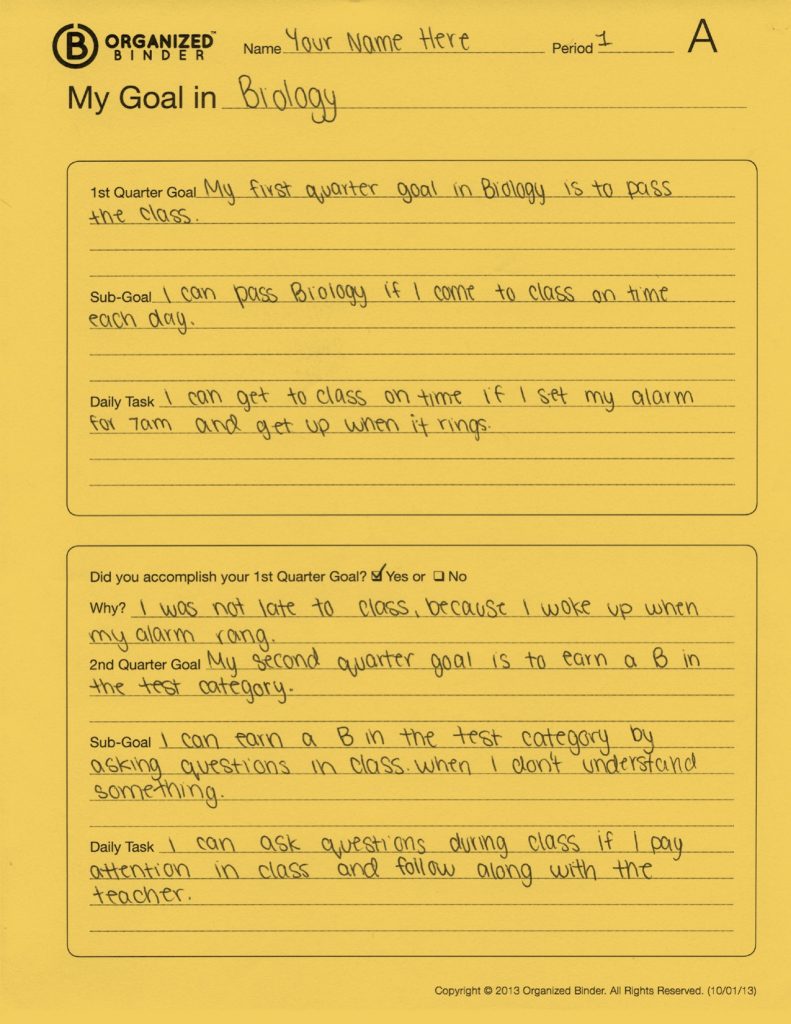 B ORGANIZED™ BINDER Name Your Name Here Period 1 A
My Goal in Biology
1st Quarter Goal My first quarter goal in Biology is to pass
the class.
Sub-Goal I can pass Biology if I come to class on time
each day.
Daily Task I can get to class on time if I set my alarm
for 7am and get up when it rings.
Did you accomplish your 1st Quarter Goal? ☑ Yes or ☐ No
Why? I was not late to class, because I woke up when
my alarm rang.
2nd Quarter Goal My second quarter goal is to earn a B in
the test category.
Sub-Goal I can earn a B in the test category by
asking questions in class. when I don't understand
something.
Daily Task I can ask questions during class if I pay
attention in class and follow along with the
teacher.
Copyright © 2013 Organized Binder. All Rights Reserved. (10/01/13)